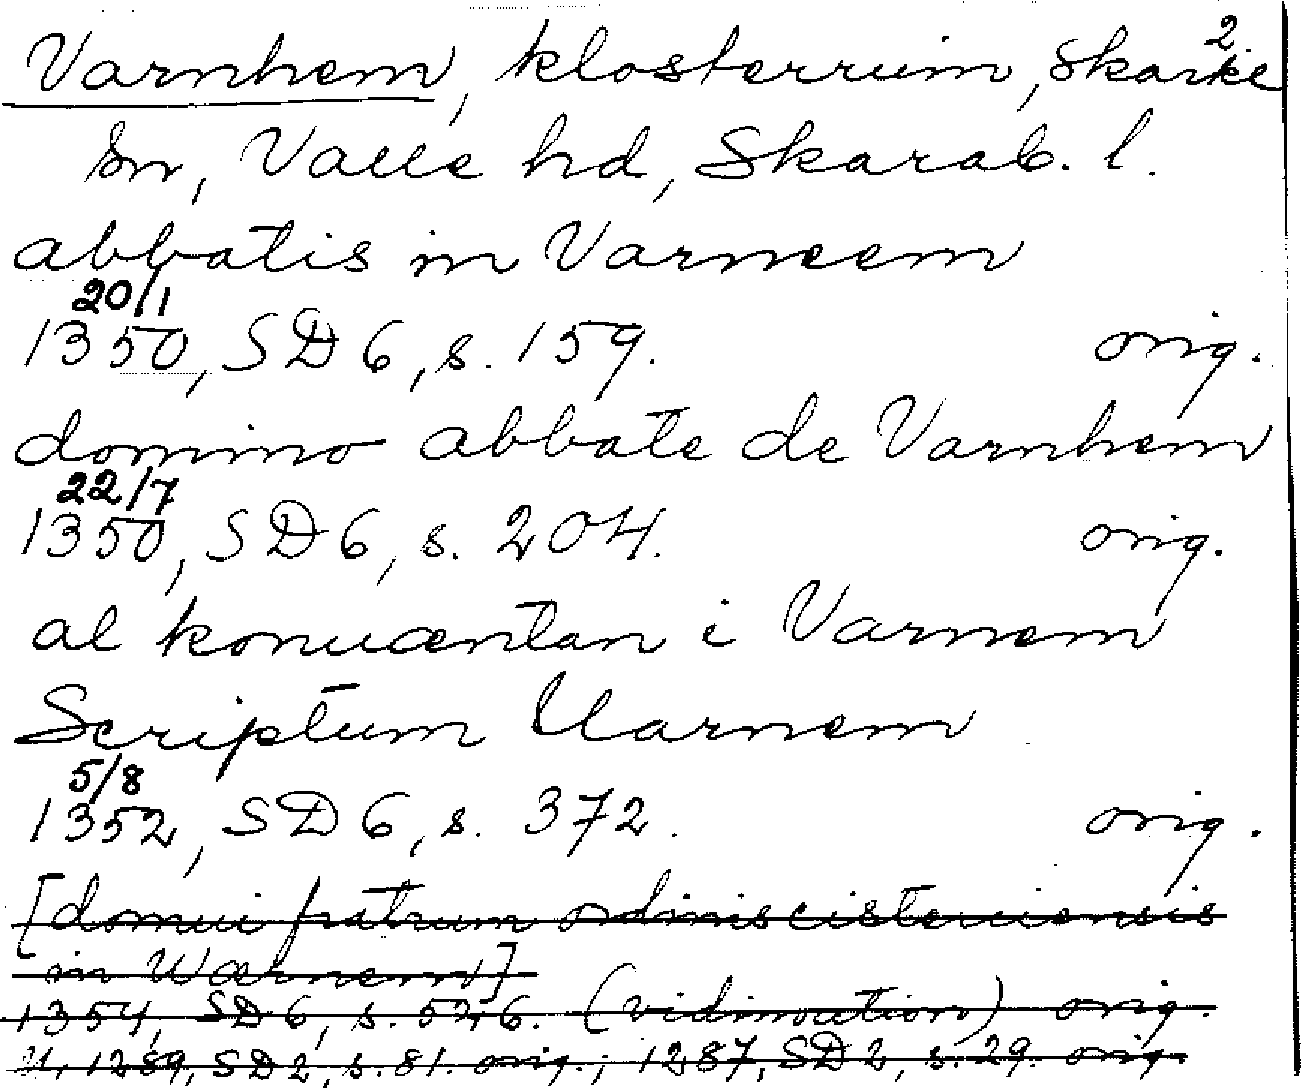 2.
Varnhem, klosterruin, Skarke
sn, Valle hd, Skarab. l.
abbatis in Varneem
20/1
1350, SD 6, s. 159. orig.
domino abbate de Varnhem
22/7
1350, SD 6, s. 204. orig.
al konuæntan i Varnem
Scriptum Uarnem
5/8
1352, SD 6, s. 372. orig.
[domui fratrum ordinis cisterciensis
in Wærnem]
1354, SD 6, s. 526. (vidimation) orig.
1289, SD 2, s. 81. orig.; 1287, SD 2, s. 29. orig.